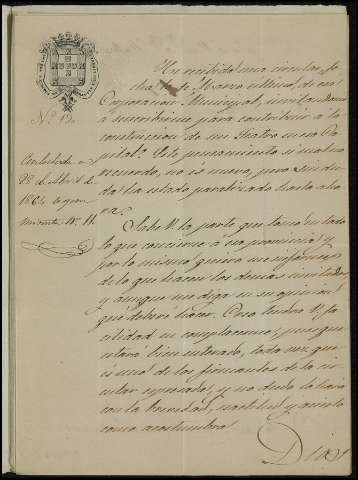 Nº 12.
Contestada en
22 de Abril de
1864 segun
minuta Nº 11.
He recibido una circular, fe
cha de Marzo ultimo, de esa
Corporacion Municipal, invitandome
á suscribirme para contribuir á la
construccion de un Teatro en esa Ca
pital. Este pensamiento si mal no
recuerdo, no es nuevo, pero sin du
da ha estado paralizado hasta aho
ra.
Sabe V. la parte que tomo en todo
lo que concierne á esa provincia y
por lo mismo quiero me informe
de lo que hacen los demas
y aunque me diga en su opinion
que deberé hacer. Creo tendra V. fa
cilidad en complacerme, pues que
estará bien enterado, toda vez que
es uno de los firmantes de la cir
cular espresada; y no dudo lo hará
con la brevedad, exactitud y acierto
como acostumbra.
Dios